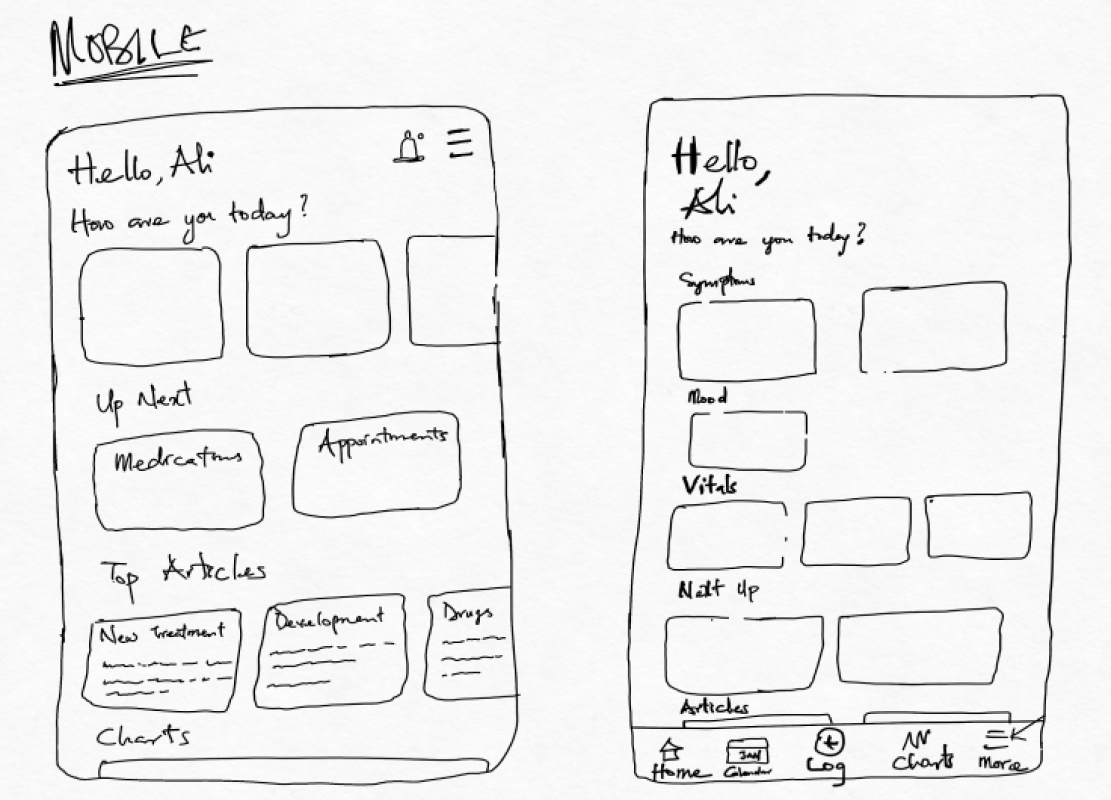 MOBILE
Hello, Ali
How are you today?
Up Next
Medications
Appointments
Top Articles
New Treatment
Development
Drugs
Charts
Hello,
Ali
How are you today?
Symptoms
Mood
Vitals
Next Up
Articles
JAN
Home
Calendar
Log
Charts
More